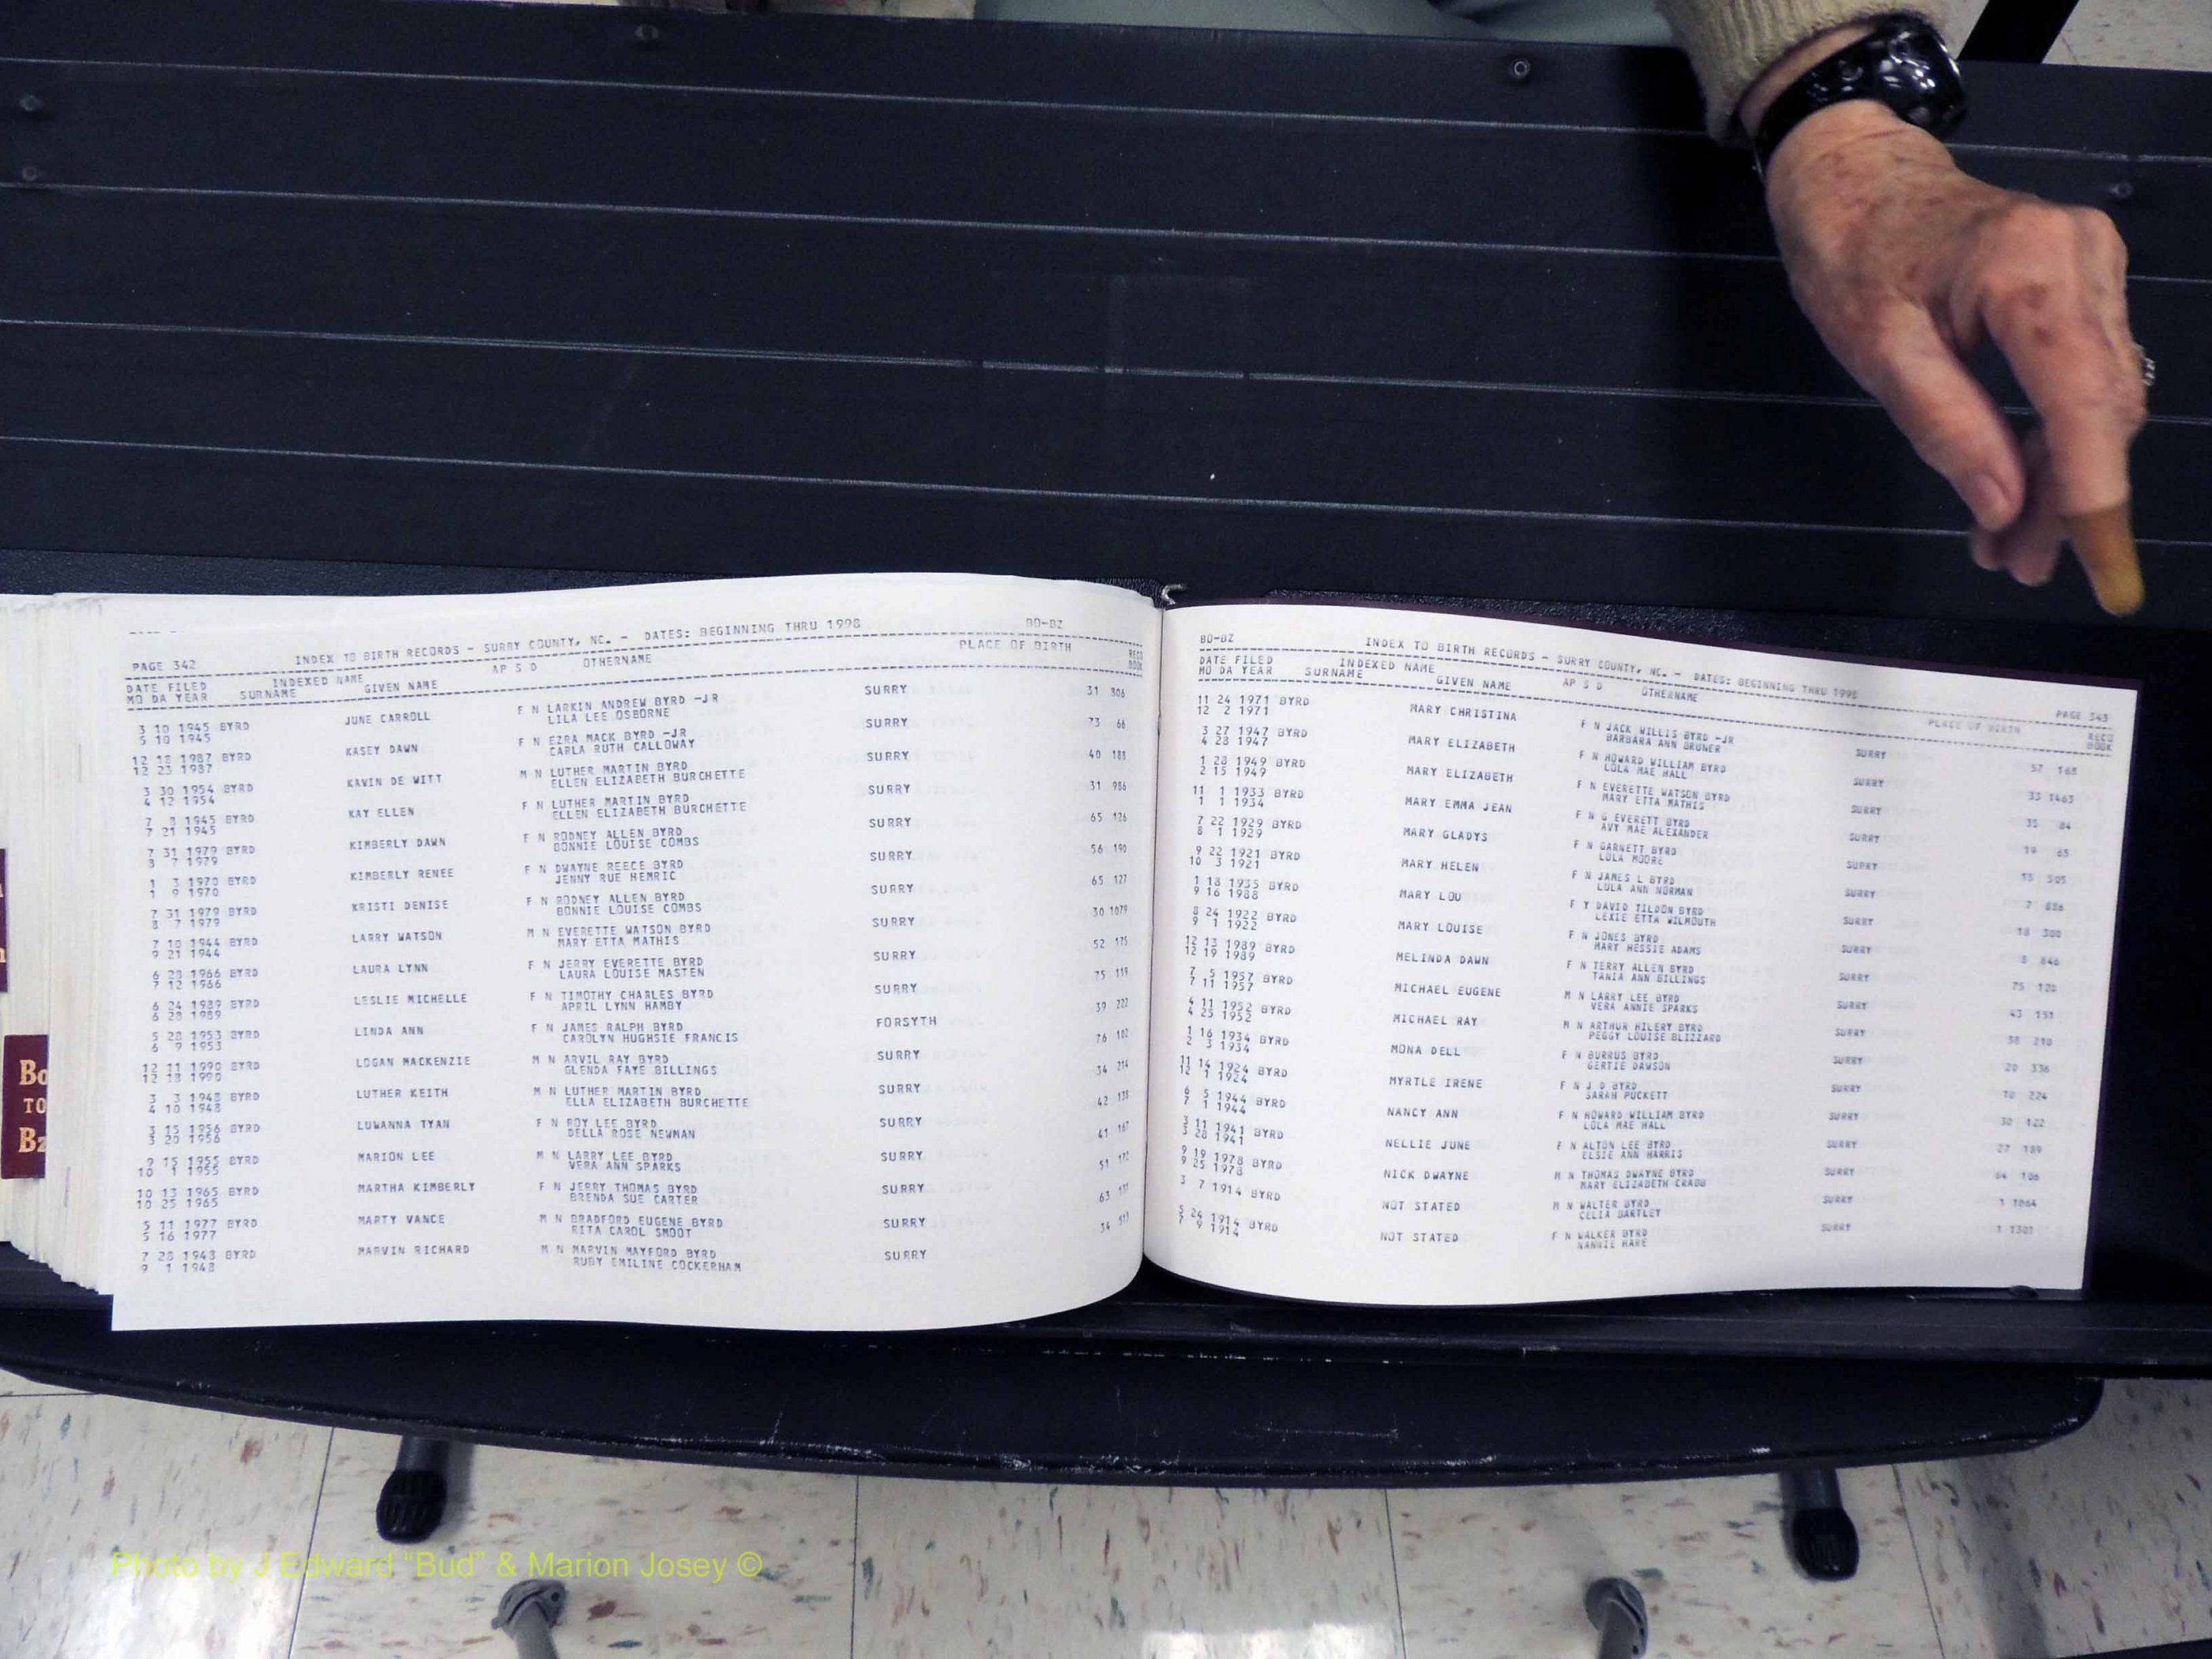 BO-BZ
PAGE 342 INDEX TO BIRTH RECORDS - SURRY COUNTY, NC. - DATES: BEGINNING THRU 1998
DATE FILED INDEXED NAME AP S D OTHERNAME PLACE OF BIRTH RECD
MO DA YEAR SURNAME GIVEN NAME BOOK
3 10 1945 BYRD JUNE CARROLL F N LARKIN ANDREW BYRD -JR SURRY 31 806
5 10 1945 LILA LEE OSBORNE
12 18 1987 BYRD KASEY DAWN F N EZRA MACK BYRD -JR SURRY 73 66
12 23 1987 CARLA RUTH CALLOWAY
3 30 1954 BYRD KAVIN DE WITT M N LUTHER MARTIN BYRD SURRY 40 188
4 12 1954 ELLEN ELIZABETH BURCHETTE
7 8 1945 BYRD KAY ELLEN F N LUTHER MARTIN BYRD SURRY 31 986
7 21 1945 ELLEN ELIZABETH BURCHETTE
7 31 1979 BYRD KIMBERLY DAWN F N RODNEY ALLEN BYRD SURRY 65 126
8 7 1979 BONNIE LOUISE COMBS
1 3 1970 BYRD KIMBERLY RENEE F N DWAYNE REECE BYRD SURRY 56 190
1 9 1970 JENNY RUE HEMRIC
7 31 1979 BYRD KRISTI DENISE F N RODNEY ALLEN BYRD SURRY 65 127
8 7 1979 BONNIE LOUISE COMBS
7 10 1944 BYRD LARRY WATSON M N EVERETTE WATSON BYRD SURRY 30 1079
9 21 1944 MARY ETTA MATHIS
6 28 1966 BYRD LAURA LYNN F N JERRY EVERETTE BYRD SURRY 52 175
7 12 1966 LAURA LOUISE MASTEN
6 24 1989 BYRD LESLIE MICHELLE F N TIMOTHY CHARLES BYRD SURRY 75 119
6 28 1989 APRIL LYNN HAMBY
5 28 1953 BYRD LINDA ANN F N JAMES RALPH BYRD FORSYTH 39 222
6 9 1953 CAROLYN HUGHSIE FRANCIS
12 11 1990 BYRD LOGAN MACKENZIE M N ARVIL RAY BYRD SURRY 76 102
12 18 1990 GLENDA FAYE BILLINGS
3 3 1948 BYRD LUTHER KEITH M N LUTHER MARTIN BYRD SURRY 34 214
4 10 1948 ELLA ELIZABETH BURCHETTE
3 15 1956 BYRD LUWANNA TYAN F N ROY LEE BYRD SURRY 42 138
3 20 1956 DELLA ROSE NEWMAN
9 15 1955 BYRD MARION LEE M N LARRY LEE BYRD SURRY 41 167
10 1 1955 VERA ANN SPARKS
10 13 1965 BYRD MARTHA KIMBERLY F N JERRY THOMAS BYRD SURRY 51 172
10 25 1965 BRENDA SUE CARTER
5 11 1977 BYRD MARTY VANCE M N BRADFORD EUGENE BYRD SURRY 63
5 16 1977 RITA CAROL SMOOT
7 28 1948 BYRD MARVIN RICHARD M N MARVIN MAYFORD BYRD SURRY 34
9 1 1948 RUBY EMILINE COCKERHAM
BO-BZ INDEX TO BIRTH RECORDS - SURRY COUNTY, NC. - DATES: BEGINNING THRU 1998 PAGE 343
DATE FILED INDEXED NAME AP S D OTHERNAME PLACE OF BIRTH RECD
MO DA YEAR SURNAME GIVEN NAME BOOK
11 24 1971 BYRD MARY CHRISTINA F N JACK WILLIS BYRD -JR SURRY 57 168
12 2 1971 BARBARA ANN BRUNER
3 27 1947 BYRD MARY ELIZABETH F N HOWARD WILLIAM BYRD SURRY 33 1463
4 28 1947 LOLA MAE HALL
1 28 1949 BYRD MARY ELIZABETH F N EVERETTE WATSON BYRD SURRY 35 84
2 15 1949 MARY ETTA MATHIS
11 1 1933 BYRD MARY EMMA JEAN F N G EVERETT BYRD SURRY 19 65
1 1 1934 AVY MAE ALEXANDER
7 22 1929 BYRD MARY GLADYS F N GARNETT BYRD SURRY 15 505
8 1 1929 LOLA MOORE
9 22 1921 BYRD MARY HELEN F N JAMES L BYRD SURRY 7 886
10 3 1921 LULA ANN NORMAN
1 18 1935 BYRD MARY LOU F Y DAVID TILDON BYRD SURRY 18 300
9 16 1988 LEXIE ETTA WILMOUTH
8 24 1922 BYRD MARY LOUISE F N JONES BYRD SURRY 8 846
9 1 1922 MARY HESSIE ADAMS
12 13 1989 BYRD MELINDA DAWN F N TERRY ALLEN BYRD SURRY 75 120
12 19 1989 TANIA ANN BILLINGS
7 5 1957 BYRD MICHAEL EUGENE M N LARRY LEE BYRD SURRY 43 151
7 11 1957 VERA ANNIE SPARKS
4 11 1952 BYRD MICHAEL RAY M N ARTHUR HILERY BYRD SURRY 38 210
4 25 1952 PEGGY LOUISE BLIZZARD
1 16 1934 BYRD MONA DELL F N BURRUS BYRD SURRY 20 336
2 3 1934 GERTIE DAWSON
11 14 1924 BYRD MYRTLE IRENE F N J D BYRD SURRY 10 224
12 1 1924 SARAH PUCKETT
6 5 1944 BYRD NANCY ANN F N HOWARD WILLIAM BYRD SURRY 30 122
7 1 1944 LOLA MAE HALL
3 11 1941 BYRD NELLIE JUNE F N ALTON LEE BYRD SURRY 27 189
3 28 1941 ELSIE ANN HARRIS
9 19 1978 BYRD NICK DWAYNE M N THOMAS DWAYNE BYRD SURRY 64 106
9 25 1978 MARY ELIZABETH CRABB
3 7 1914 BYRD NOT STATED M N WALTER BYRD SURRY 1 1064
CELIA BARTLEY
5 24 1914 BYRD NOT STATED F N WALKER BYRD SURRY 1 1301
7 9 1914 NANNIE HARE
Bo
TO
Bz
Photo by J Edward “Bud” & Marion Josey ©